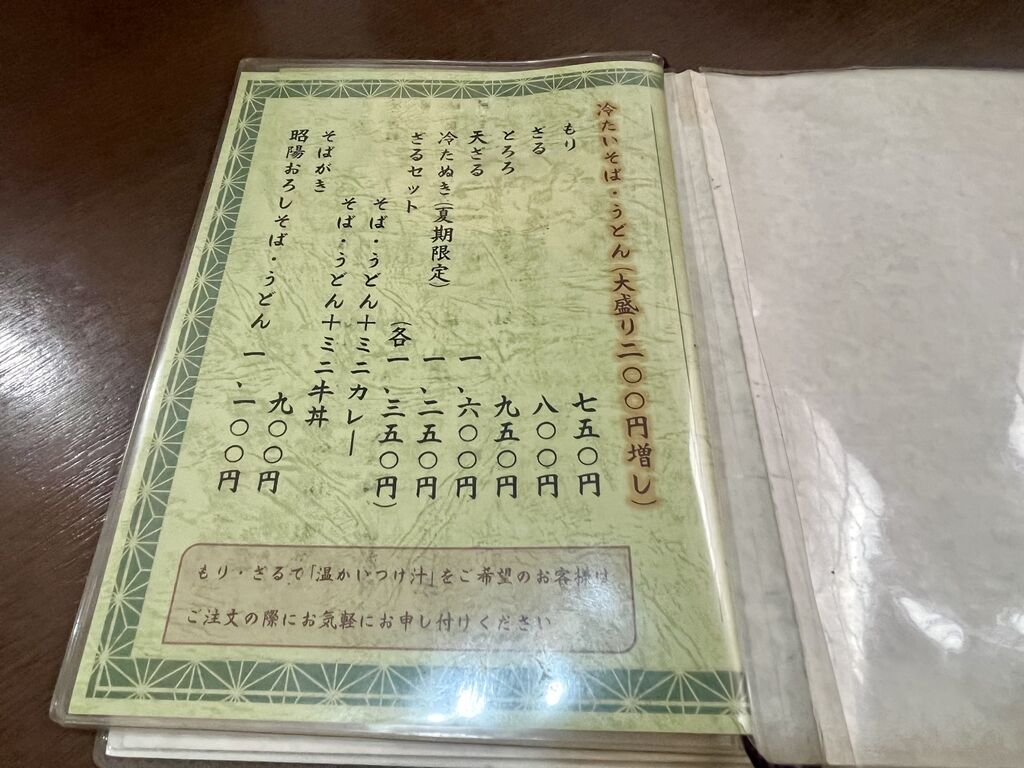 冷たいそば・うどん(大盛り二〇〇円増し)
もり 七五〇円
ざる 八〇〇円
とろろ 九五〇円
天ざる 一、六〇〇円
冷たぬき(夏期限定) 一、二五〇円
ざるセット (各一、三五〇円)
そば・うどん＋ミニカレー
そば・うどん＋ミニ牛丼
そばがき 九〇〇円
昭陽おろしそば・うどん 一、一〇〇円
もり・ざるで「温かいつけ汁」をご希望のお客様は
ご注文の際にお気軽にお申し付けください